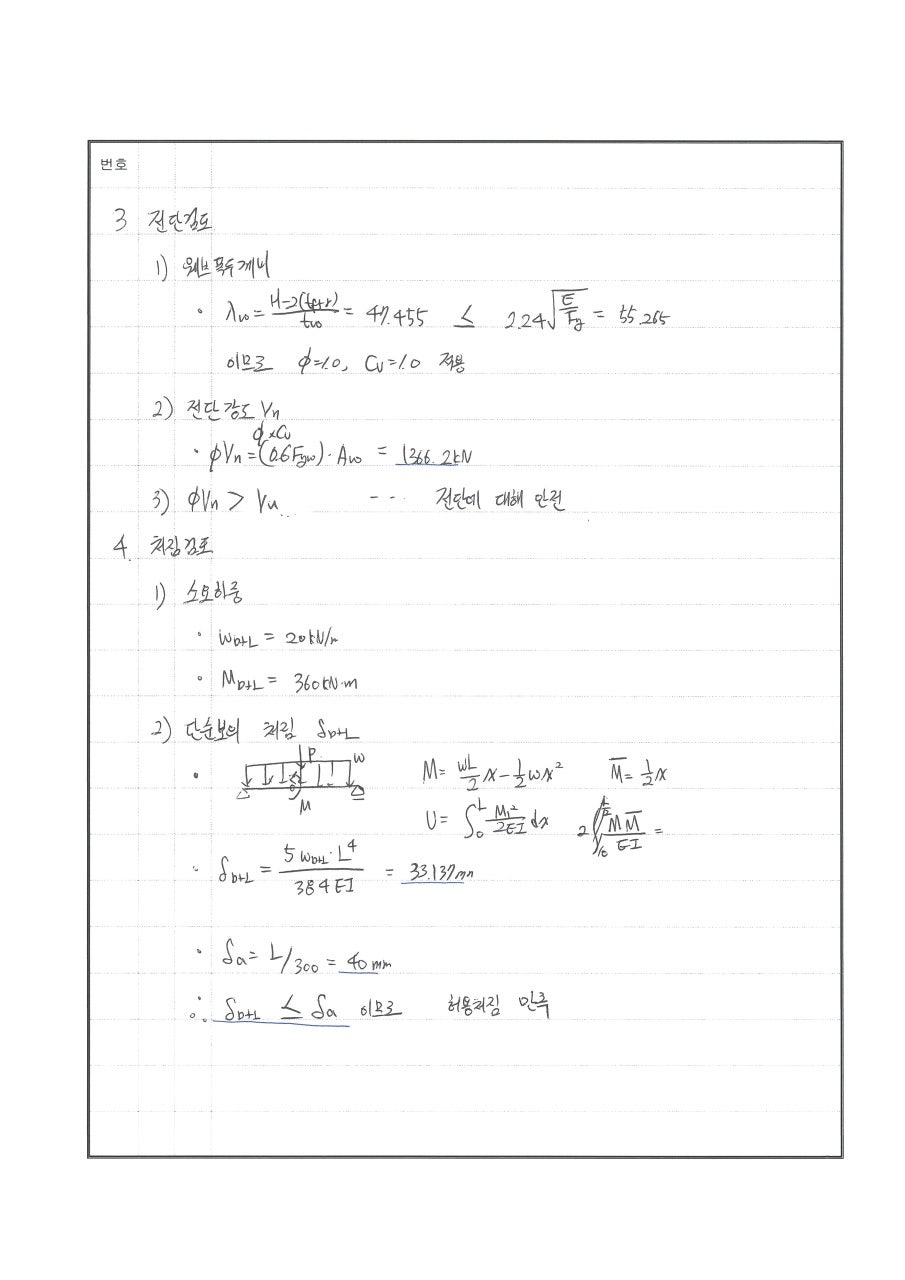 번호
3 전단검토
1) 웨브폭두께비
· λw = H-2(tf+r) / tw = 47.455 ≤ 2.24√(E/Fy) = 55.265
이므로 ϕ=1.0, Cv=1.0 적용
2) 전단강도 Vn
ϕ×Cv
· ϕVn=(0.6Fyw)·Aw = 1366.2kN
3) ϕVn > Vu --- 전단에 대해 안전
4. 처짐검토
1) 소요하중
· wD+L = 20kN/m
· MD+L = 360kN·m
2) 단순보의 처짐 δD+L
· P w M M = wL/2 x - 1/2 wx² M̄ = 1/2 x
U = ∫₀ᴸ M²/2EI dx 2∫ MM̄/EI =
· δD+L = 5wD+L·L⁴ / 384EI = 33.137mm
· δa = L/300 = 40mm
∴ δD+L ≤ δa 이므로 허용처짐 만족